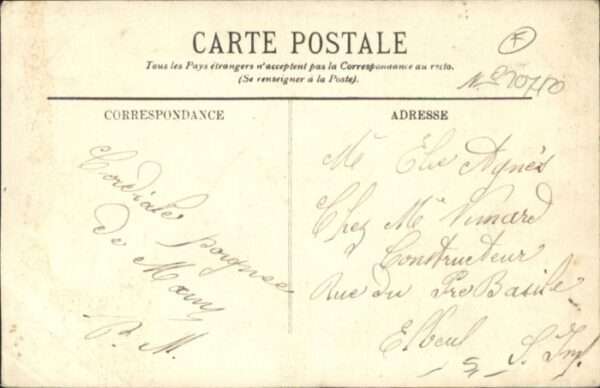 CARTE POSTALE
Tous les Pays étrangers n'acceptent pas la Correspondance au recto.
(Se renseigner à la Poste).
F
CORRESPONDANCE
ADRESSE
Cordiale poignée
de Main
P. M.
Me Elie Agnès
Chez Mr Vimard
Constructeur
Rue du Pré Basile
Elbeuf
S. Inf